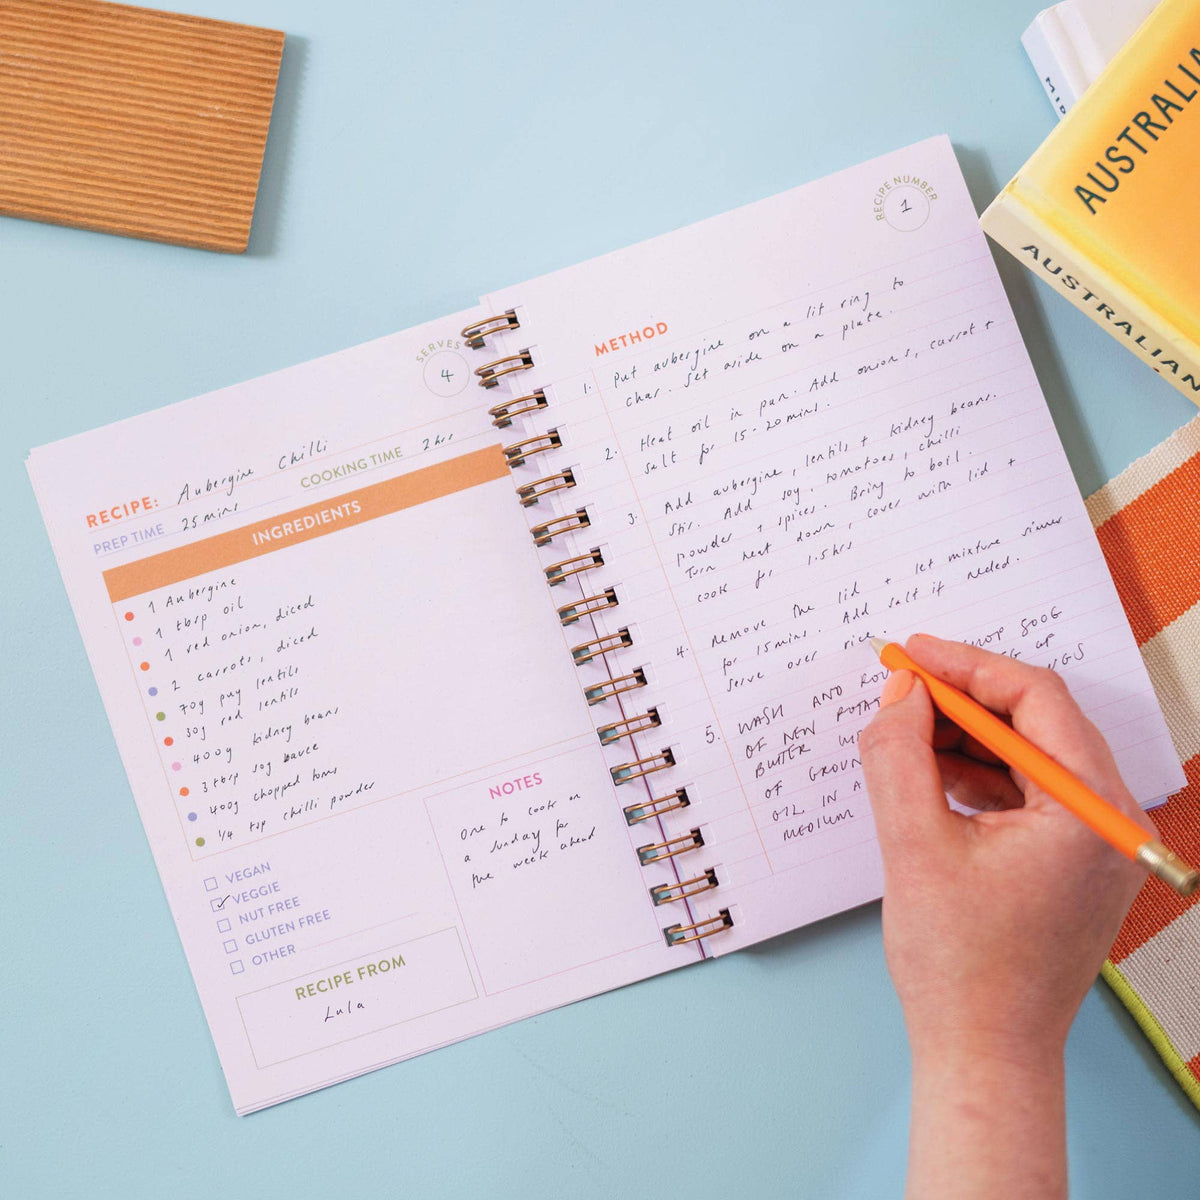 SERVES
4
RECIPE: Aubergine Chilli
PREP TIME 25 mins COOKING TIME 2 hrs
INGREDIENTS
1 Aubergine
1 tbsp oil
1 red onion, diced
2 carrots, diced
70g puy lentils
30g red lentils
400g kidney beans
3 tbsp soy sauce
400g chopped toms
1/4 tsp chilli powder
VEGAN
VEGGIE
NUT FREE
GLUTEN FREE
OTHER
NOTES
One to cook on
a sunday for
the week ahead
RECIPE FROM
Lula
RECIPE NUMBER
1
METHOD
1. Put aubergine on a lit ring to
char. Set aside on a plate.
2. Heat oil in pan. Add onions, carrot +
salt for 15-20 mins.
3. Add aubergine, lentils + kidney beans.
Stir. Add soy, tomatoes, chilli
powder + spices. Bring to boil.
Turn heat down, cover with lid +
cook for 1.5hrs
4. Remove the lid + let mixture simmer
for 15mins. Add salt if needed.
Serve over rice.
5. WASH AND CHOP 800G
OF NEW
BUTTER
OF
OIL. IN A
MEDIUM
AUSTRALIA
AUSTRALIAN